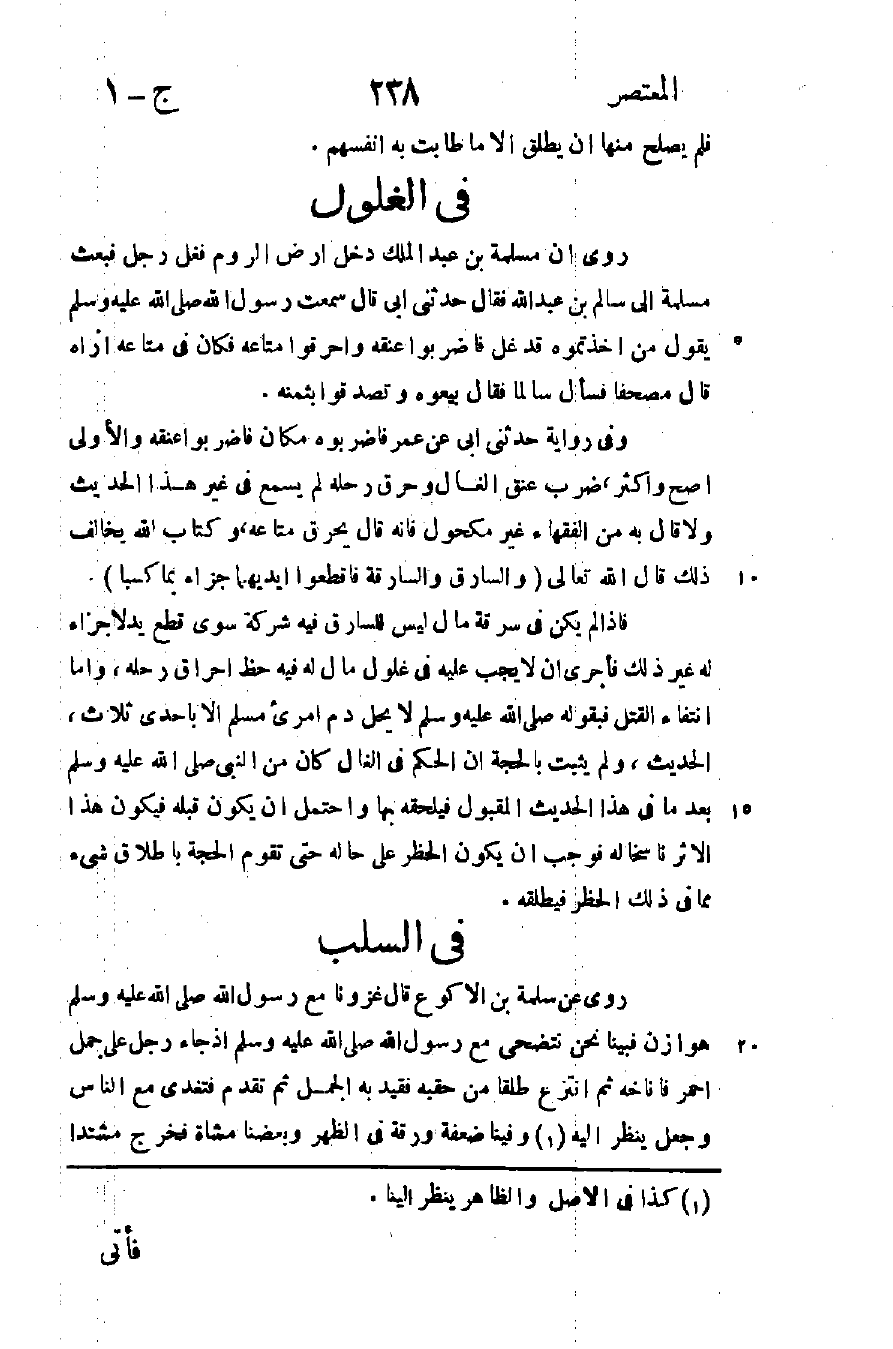 المعتصر ٢٣٨ ج - ١
فلم يصلح منها ان يطلق الا ما طابت به انفسهم .
فى الغلول
روى ان مسلمة بن عبد الملك دخل ارض الروم فغل رجل فبعث
مسلمة الى سالم بن عبد الله فقال حدثنى ابى قال سمعت رسول الله صلى الله عليه وسلم
يقول من اخذتموه قد غل فاضربوا عنقه واحرقوا متاعه فكان فى متاعه أراه ٥
قال مصحفا فسأل سالما فقال بيعوه وتصدقوا بثمنه .
وفى رواية حدثنى ابى عن عمر فاضربوه مكان فاضربوا عنقه والأولى
اصح واكثر ، ضرب عنق الغال وحرق رحله لم يسمع فى غير هذا الحديث
ولا قال به من الفقهاء غير مكحول فانه قال يحرق متاعه ، وكتاب الله يخالف
ذلك قال الله تعالى ( والسارق والسارقة فاقطعوا ايديهما جزاء بما كسبا ) . ١٠
فاذا لم يكن فى سرقة مال ليس للسارق فيه شركة سوى قطع يد لا جزاء
له غير ذلك فأحرى ان لا يجب عليه فى غلول مال له فيه حظ احراق رحله ، واما
انتفاء القتل فبقوله صلى الله عليه وسلم لا يحل دم امرئ مسلم الا باحدى ثلاث ،
الحديث ، ولم يثبت بالحجة ان الحكم فى الغال كان من النبى صلى الله عليه وسلم
بعد ما فى هذا الحديث المقبول فيلحقه بها واحتمل ان يكون قبله فيكون هذا ١٥
الاثر ناسخا له فوجب ان يكون الحظر على حاله حتى تقوم الحجة باطلاق شىء
مما فى ذلك الحظر فيطلقه .
فى السلب
روى عن سلمة بن الاكوع قال غزونا مع رسول الله صلى الله عليه وسلم
هوازن فبينا نحن نتضحى مع رسول الله صلى الله عليه وسلم اذ جاء رجل على جمل ٢٠
احمر فاناخه ثم انتزع طلقا من حقبه فقيد به الجمل ثم تقدم فتغدى مع الناس
وجعل ينظر اليه (١) وفينا ضعفة ورقة فى الظهر وبعضنا مشاة فخرج مشتدا
(١) كذا فى الاصل والظاهر ينظر الينا .
فأتى